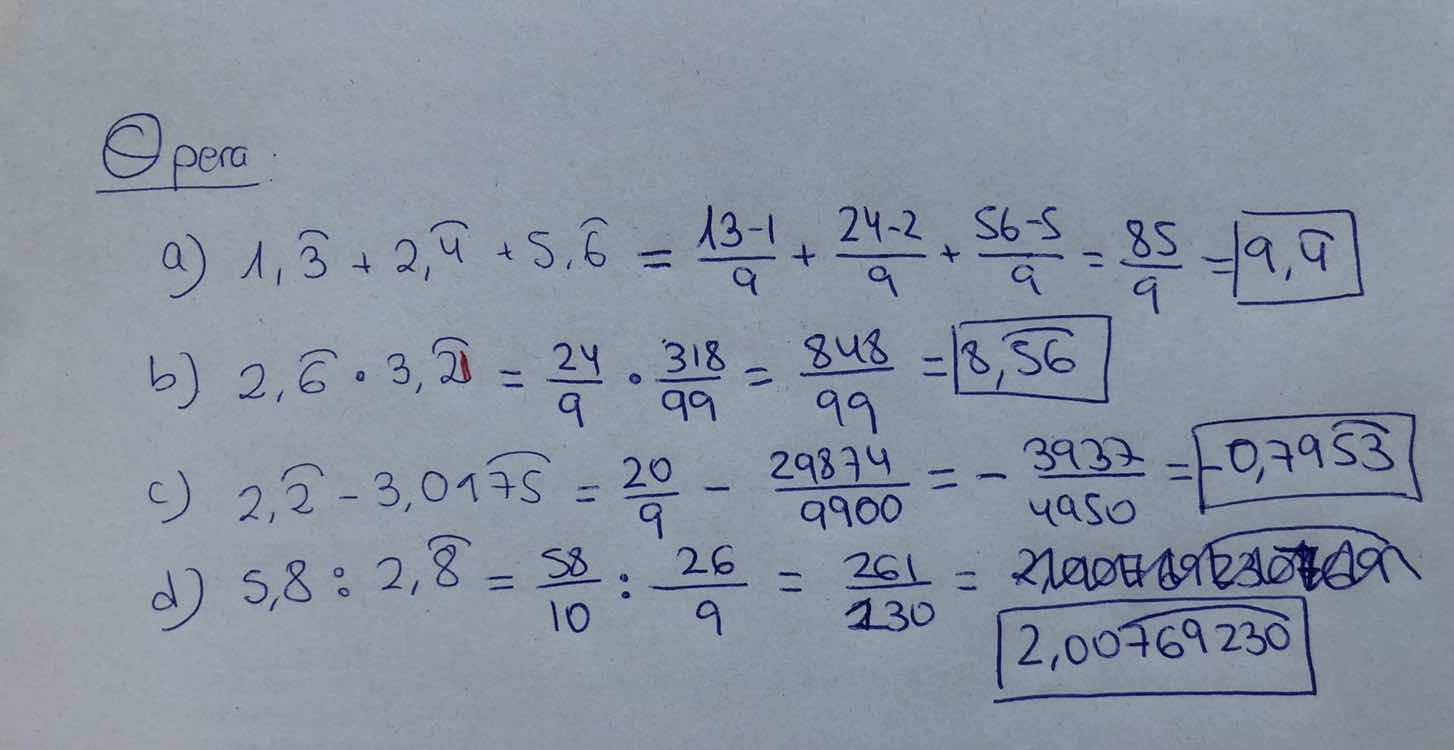 Opera:
a) 1,3̑ + 2,4̑ + 5,6̑ = 13-1/9 + 24-2/9 + 56-5/9 = 85/9 = 9,4̑
b) 2,6̑ · 3,2̑1̑ = 24/9 · 318/99 = 848/99 = 8,5̑6̑
c) 2,2̑ - 3,017̑5̑ = 20/9 - 29874/9900 = - 3937/4950 = -0,795̑3̑
d) 5,8 : 2,8̑ = 58/10 : 26/9 = 261/130 =
2,007̑6̑9̑2̑3̑0̑